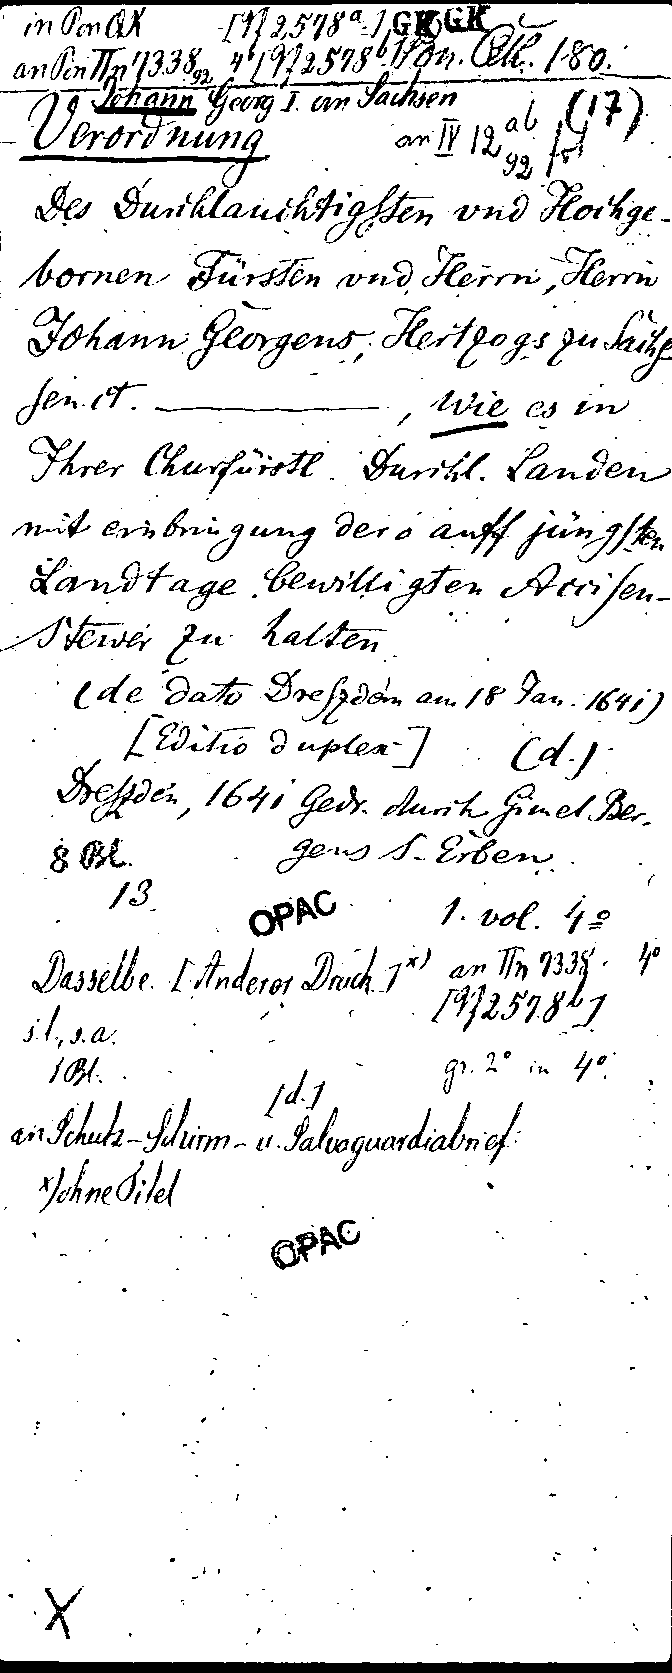 in Pon QK [9] 2,578ᵃ.] GK GK
an Pon IIn 7338, 4° [9] 2578ᵇ. Pon. QK. 180.
Johann Georg I. von Sachsen
Verordnung an IV 12 (17)
Des Durchlauchtigsten vnd Hochge-
bornen Fürsten vnd Herrn, Herrn
Johann Georgens, Hertzogs zu Sach
sen. et. ———, Wie es in
Ihrer Churfürstl. Durchl. Landen
mit einbringung der o auff jüngsten
Landtage bewilligten Accisen-
Stewer zu halten
(de dato Dreszden am 18 Jan. 1641)
[Editio duplex] (d.)
Dreszden, 1641 Gedr. durch Gimel Ber-
8 Bl. gens S. Erben
13
OPAC 1. vol. 4°
Dasselbe. [Anderer Druck.]ˣ⁾ an IIn 7338. 4°
s.l., s.a. [9] 2578ᵇ]
1 Bl. gr. 2° in 4°.
[d.]
an Schutz-Schirm- u. Salvaguardiabrief.
ˣ⁾ ohne Titel
OPAC
X